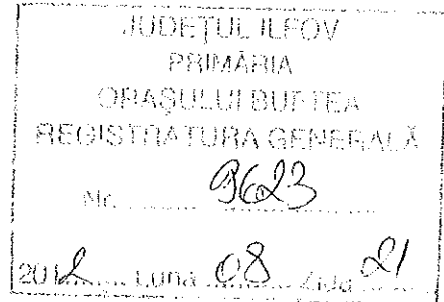 JUDEȚUL ILFOV
PRIMĂRIA
ORAȘULUI BUFTEA
REGISTRATURA GENERALĂ
Nr. ......... 9623 .........
2012 ..... Luna 08 ..... Ziua 21 .....